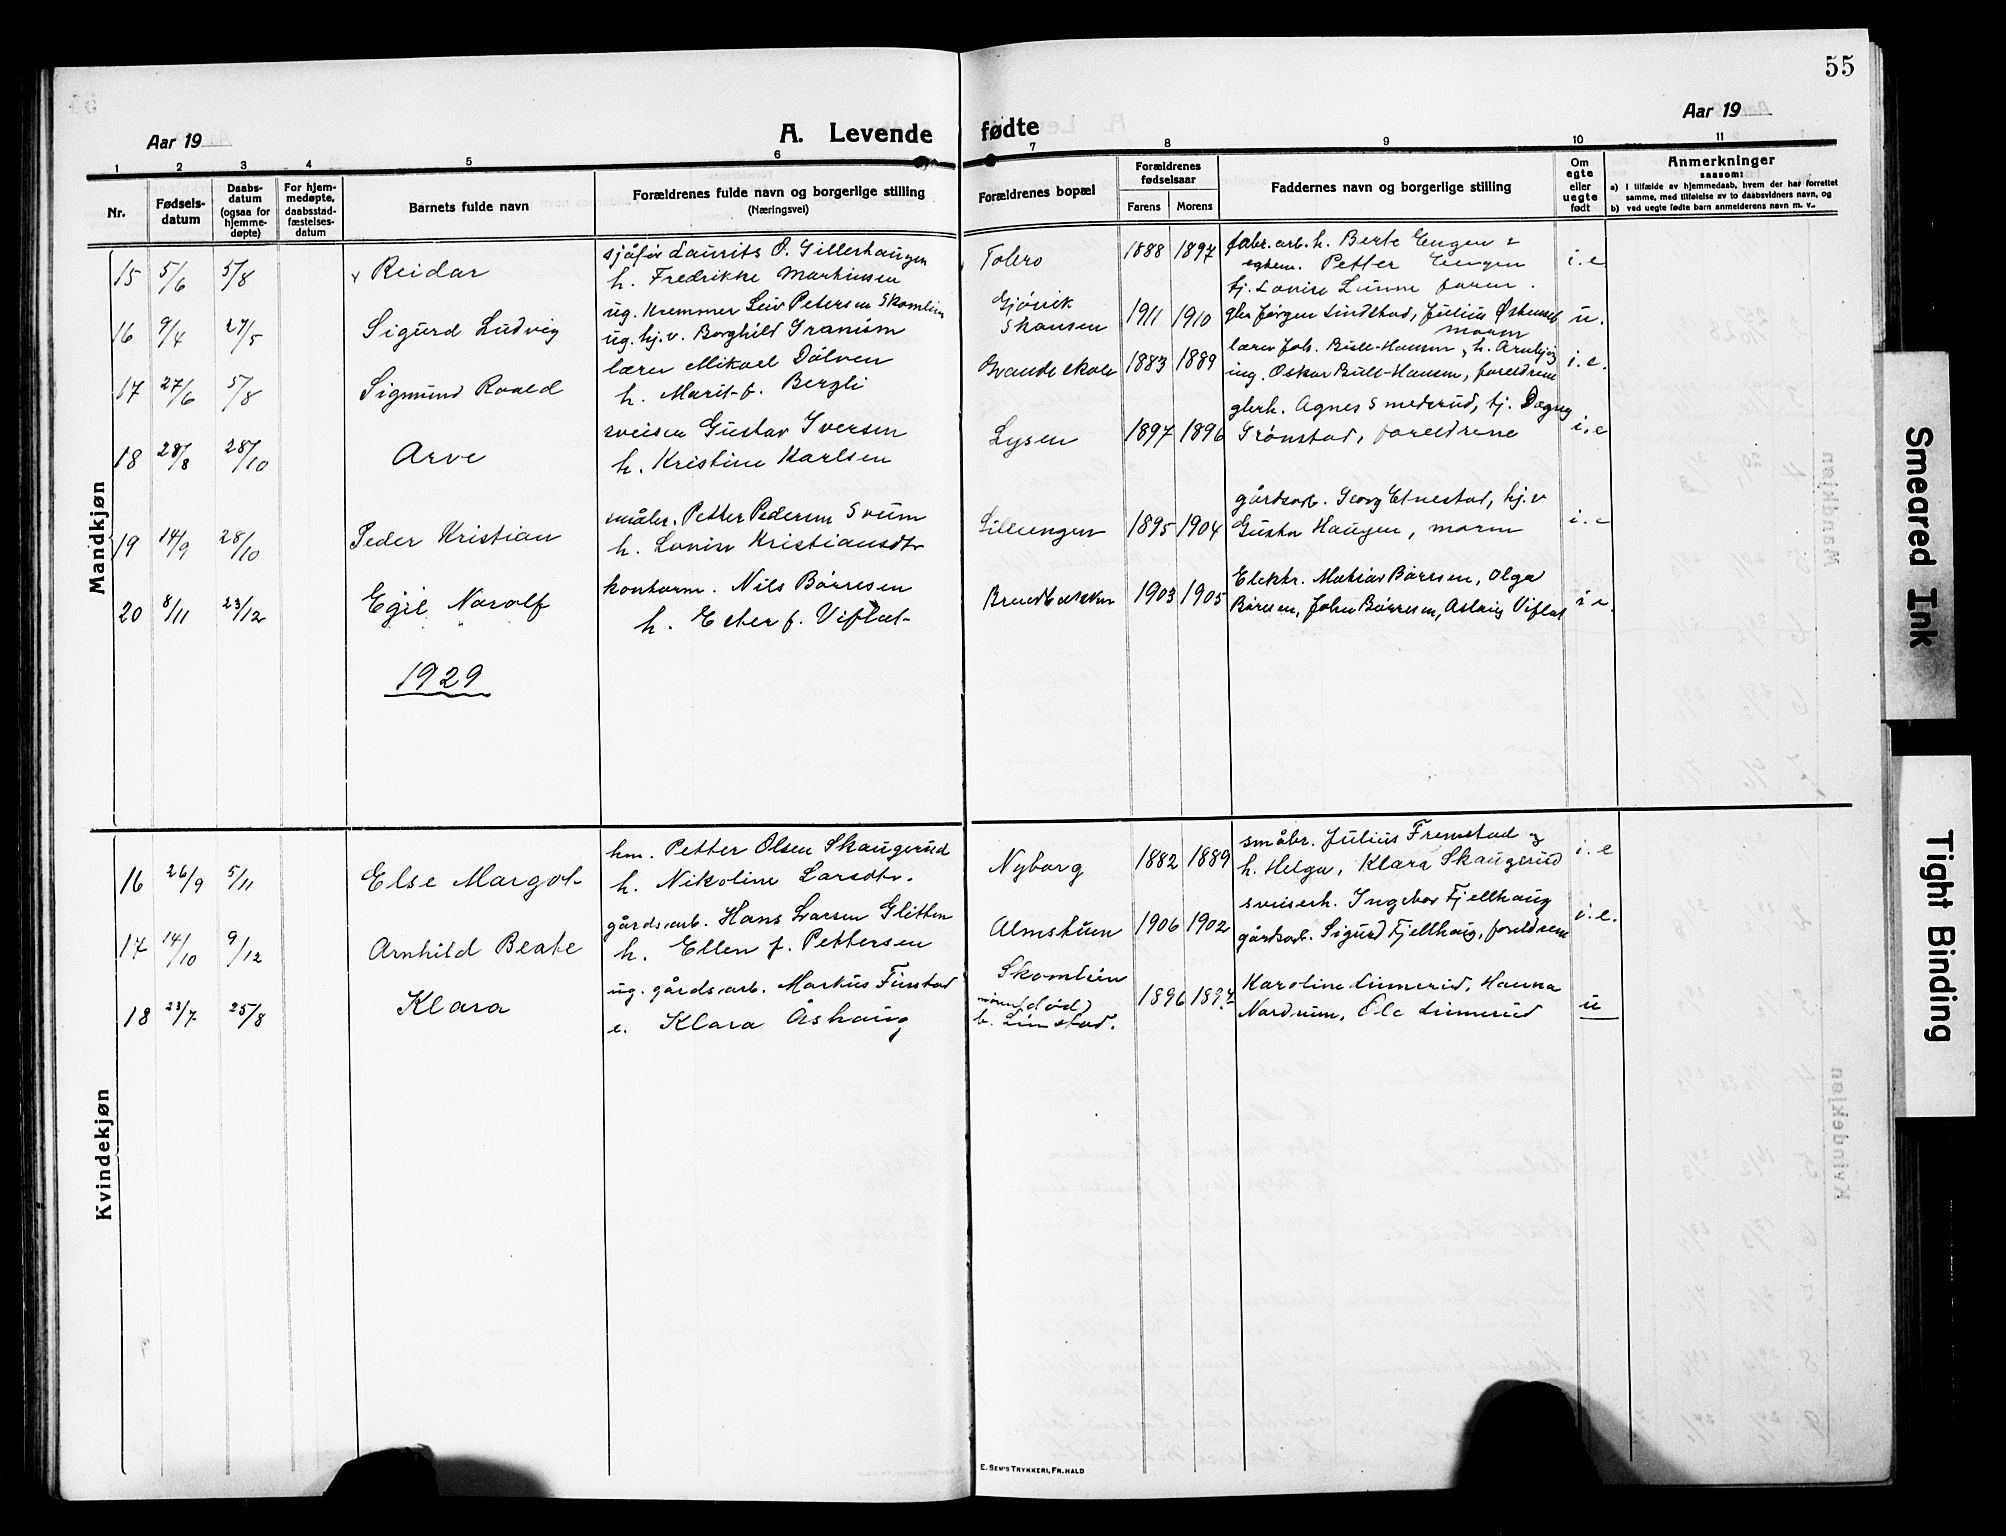 55
Aar 19
A. Levende fødte
Aar 19
1 2 3 4 5 6 7 8 9 10 11
Nr.
Fødsels-
datum
Daabs-
datum
(ogsaa for
hjemme-
døpte)
For hjem-
medøpte,
daabsstad-
fæstelses-
datum
Barnets fulde navn
Forældrenes fulde navn og borgerlige stilling
(Næringsvei)
Forældrenes bopæl
Forældrenes
fødselsaar
Farens Morens
Faddernes navn og borgerlige stilling
Om
egte
eller
uegte
født
Anmerkninger
saasom:
a) I tilfælde av hjemmedaab, hvem der har forrettet
samme, med tilføielse av to daabsvidners navn, og
b) ved uegte fødte barn anmelderens navn m. v..
Mandkjøn
15 5/6 5/8 Reidar
sjåfør Laurits O. Gillerhaugen
h. Fredrikke Martinsen
1888 1897
fabr.arb. h. Berte Engen
Petter Engen
tj. Lovise Lunne faren.
i.e
16 9/4 27/5 Sigurd Ludvig
ug. Kremmer Leiv Petersen Skomlien
ug. hj.v. Borghild Granum
Gjøvik
Skansen
1911 1910
Jørgen Lindstad, Julius
morm
u.
17 27/6 5/8 Sigmund Roald
lærer Mikael Dølven
h. Marit f. Bergli
Grande skole
1883 1889
lærer Joh. Bull-Hansen, h. Arnbjørg
ing. Oskar Bull-Hansen, foreldrene
i.e.
18 28/8 28/10 Arve
sveiser Gustav Iversen
h. Kristine Karlsen
Lysen
1897 1896
h. Agnes Smederud, tj. Dagny
Grønstad, foreldrene
i.e
19 14/9 28/10 Peder Kristian
småbr. Petter Pedersen Svum
h. Lovise Kristiansdtr
Lilleengen
1895 1904
gårdsarb. Georg Etnestad, hj.v
Gusta Haugen, morm
i.e
20 8/11 23/12 Egil Narolf
kontorm. Nils Børresen
h. Ester f. Viflat
1903 1905
Elektr. Matias Børresen, Olga
Børresen, John Børresen, Aslaug Viflat
i e.
1929
Kvindekjøn
16 26/9 5/11 Else Margot
hm. Petter Olsen Skaugerud
h. Nikoline Larsdtr.
Nyborg
1882 1889
småbr. Julius Fremstad og
h. Helga, Klara Skaugerud
i.e
17 14/10 9/12 Arnhild Beate
gårdsarb. Hans Larsen Glitten
h. Ellen f. Pettersen
Almstuen
1906 1902
sveiserh. Ingebor Fjellhaug
gårdsarb. Sigurd Fjellhaug, foreldrene
i.e.
18 23/7 25/8 Klara
ug. gårdsarb. Markus Finstad
e. Klara Åshaug
Skomlien
(død)
b. Linstad.
1896 1897
Karoline Linnerud, Hanna
Nordrum, Ole Linnerud
u
E. Sem's Trykkeri, Fr.hald
Smeared Ink
Tight Binding